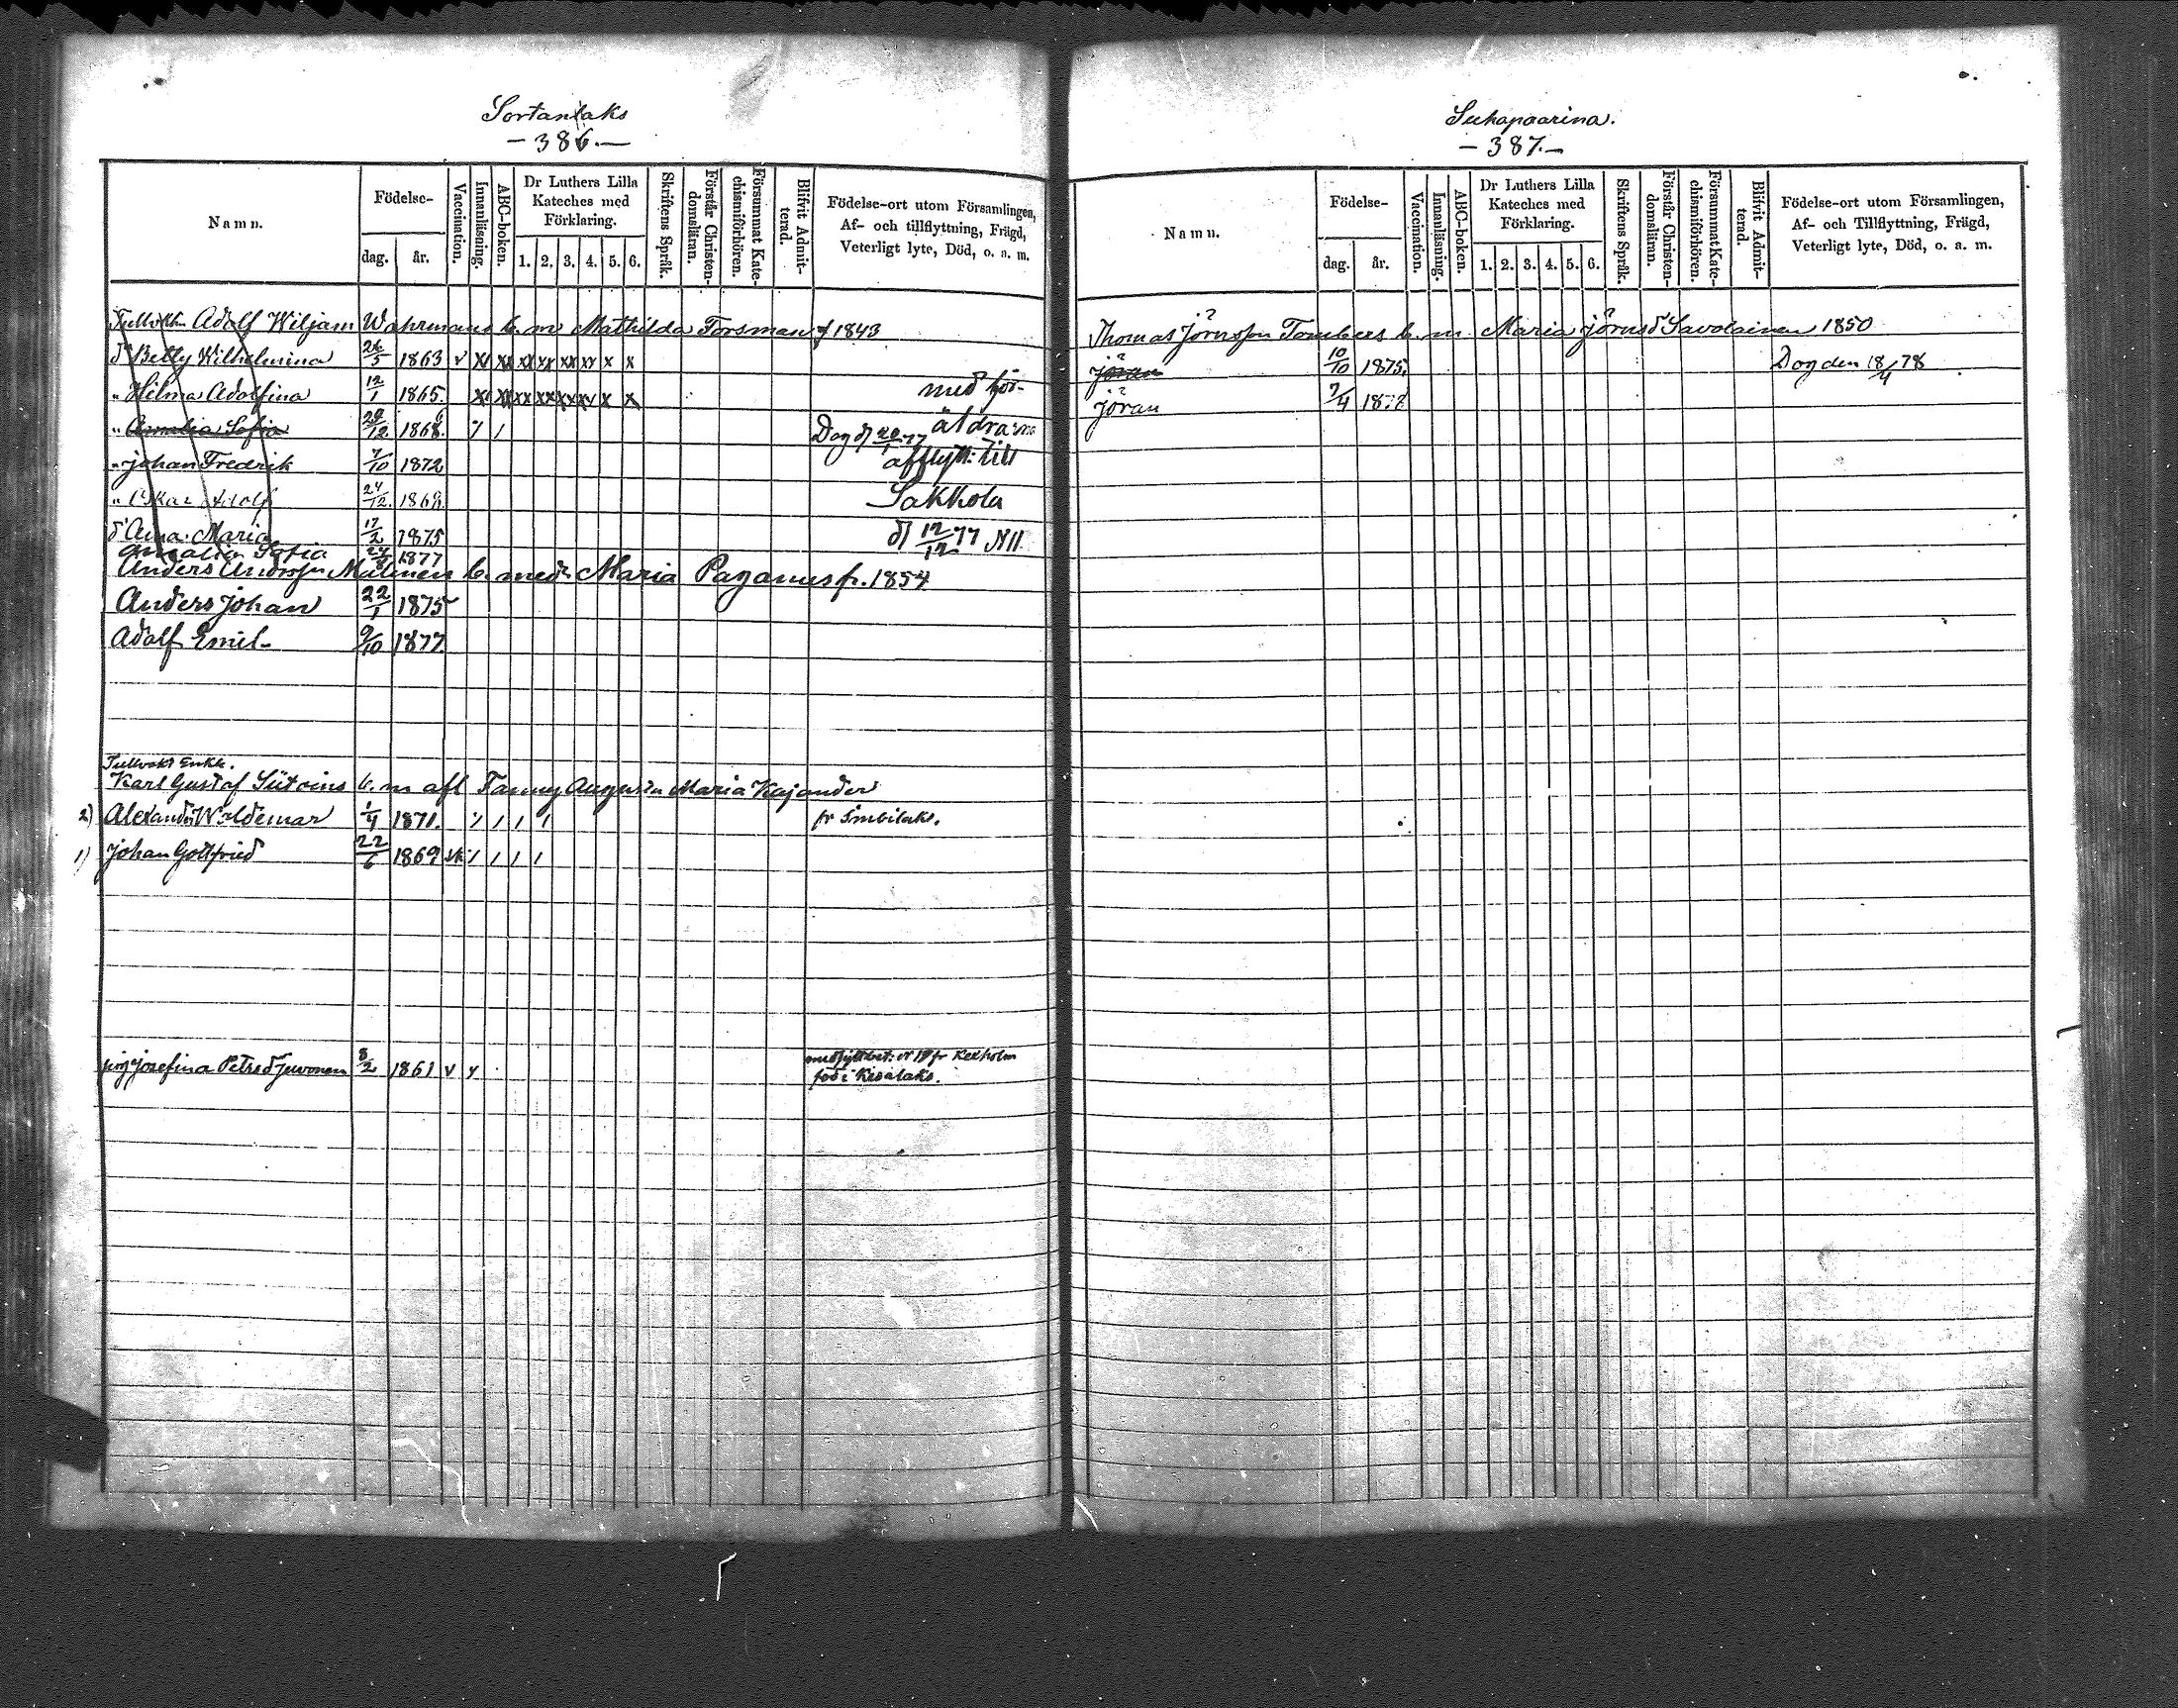 Sortanlaks
— 386. —
Namn.
Födelse-
dag.
år.
Vaccination.
Innanläsning.
ABC-boken.
Dr Luthers Lilla
Kateches med
Förklaring.
1. 2. 3. 4. 5. 6.
Skriftens Språk.
Förstår Christen-
domsläran.
Försummat Kate-
chismiförhören.
Blifvit Admit-
terad.
Födelse-ort utom Församlingen,
Af- och tillflyttning, Frägd,
Veterligt lyte, Död, o. a. m.
Adolf Wiljam Wahrmans b. m Mathilda Forsman f 1843
d' Betty Wilhelmina 26/5 1863 v x xx xx xx xx xx x x
" Hilma Adolfina 12/1 1865. x xx xx xx xx xx x x med för-
" Amalia Sofia 29/12 1868. / / Dog d/ äldrarne
" Johan Fredrik 7/10 1872 afflytt: till
" Oskar Adolf 24/12. 1869. Sakkola
d' Aina Maria 17/2 1875 d/ 12/12 77 N11.
Amalia Sofia 24/8 1877
Anders Andrsson Mulinens b. med Maria Paganus fr. 1854
Anders Johan 22/1 1875
Adolf Emil 9/10 1877
Tullvakt Enkl.
Karl Gustaf b. m afl Fanny Augusta Maria Kajander
2) Alexander Woldemar 1/4 1871. / / / / fr Imbilaks.
1) Johan Gottfried 22/6 1869 / / / /
pig Josefina Petersd Juvonen 8/2 1861 v y fr Kexholm
född i Kesälaks.
Suhapaarina.
— 387. —
Namn.
Födelse-
dag.
år.
Vaccination.
Innanläsning.
ABC-boken.
Dr Luthers Lilla
Kateches med
Förklaring.
1. 2. 3. 4. 5. 6.
Skriftens Språk.
Förstår Christen-
domslämn.
Försummat Kate-
chismiförhören.
Blifvit Admit-
terad.
Födelse-ort utom Församlingen,
Af- och Tillflyttning, Frägd,
Veterligt lyte, Död, o. a. m.
Thomas Jöransson Tombers b. m. Maria Jöransd' Savolainen 1850
Jöran 10/10 1875. Dog den 18/4 78
Jöran 7/4 1878